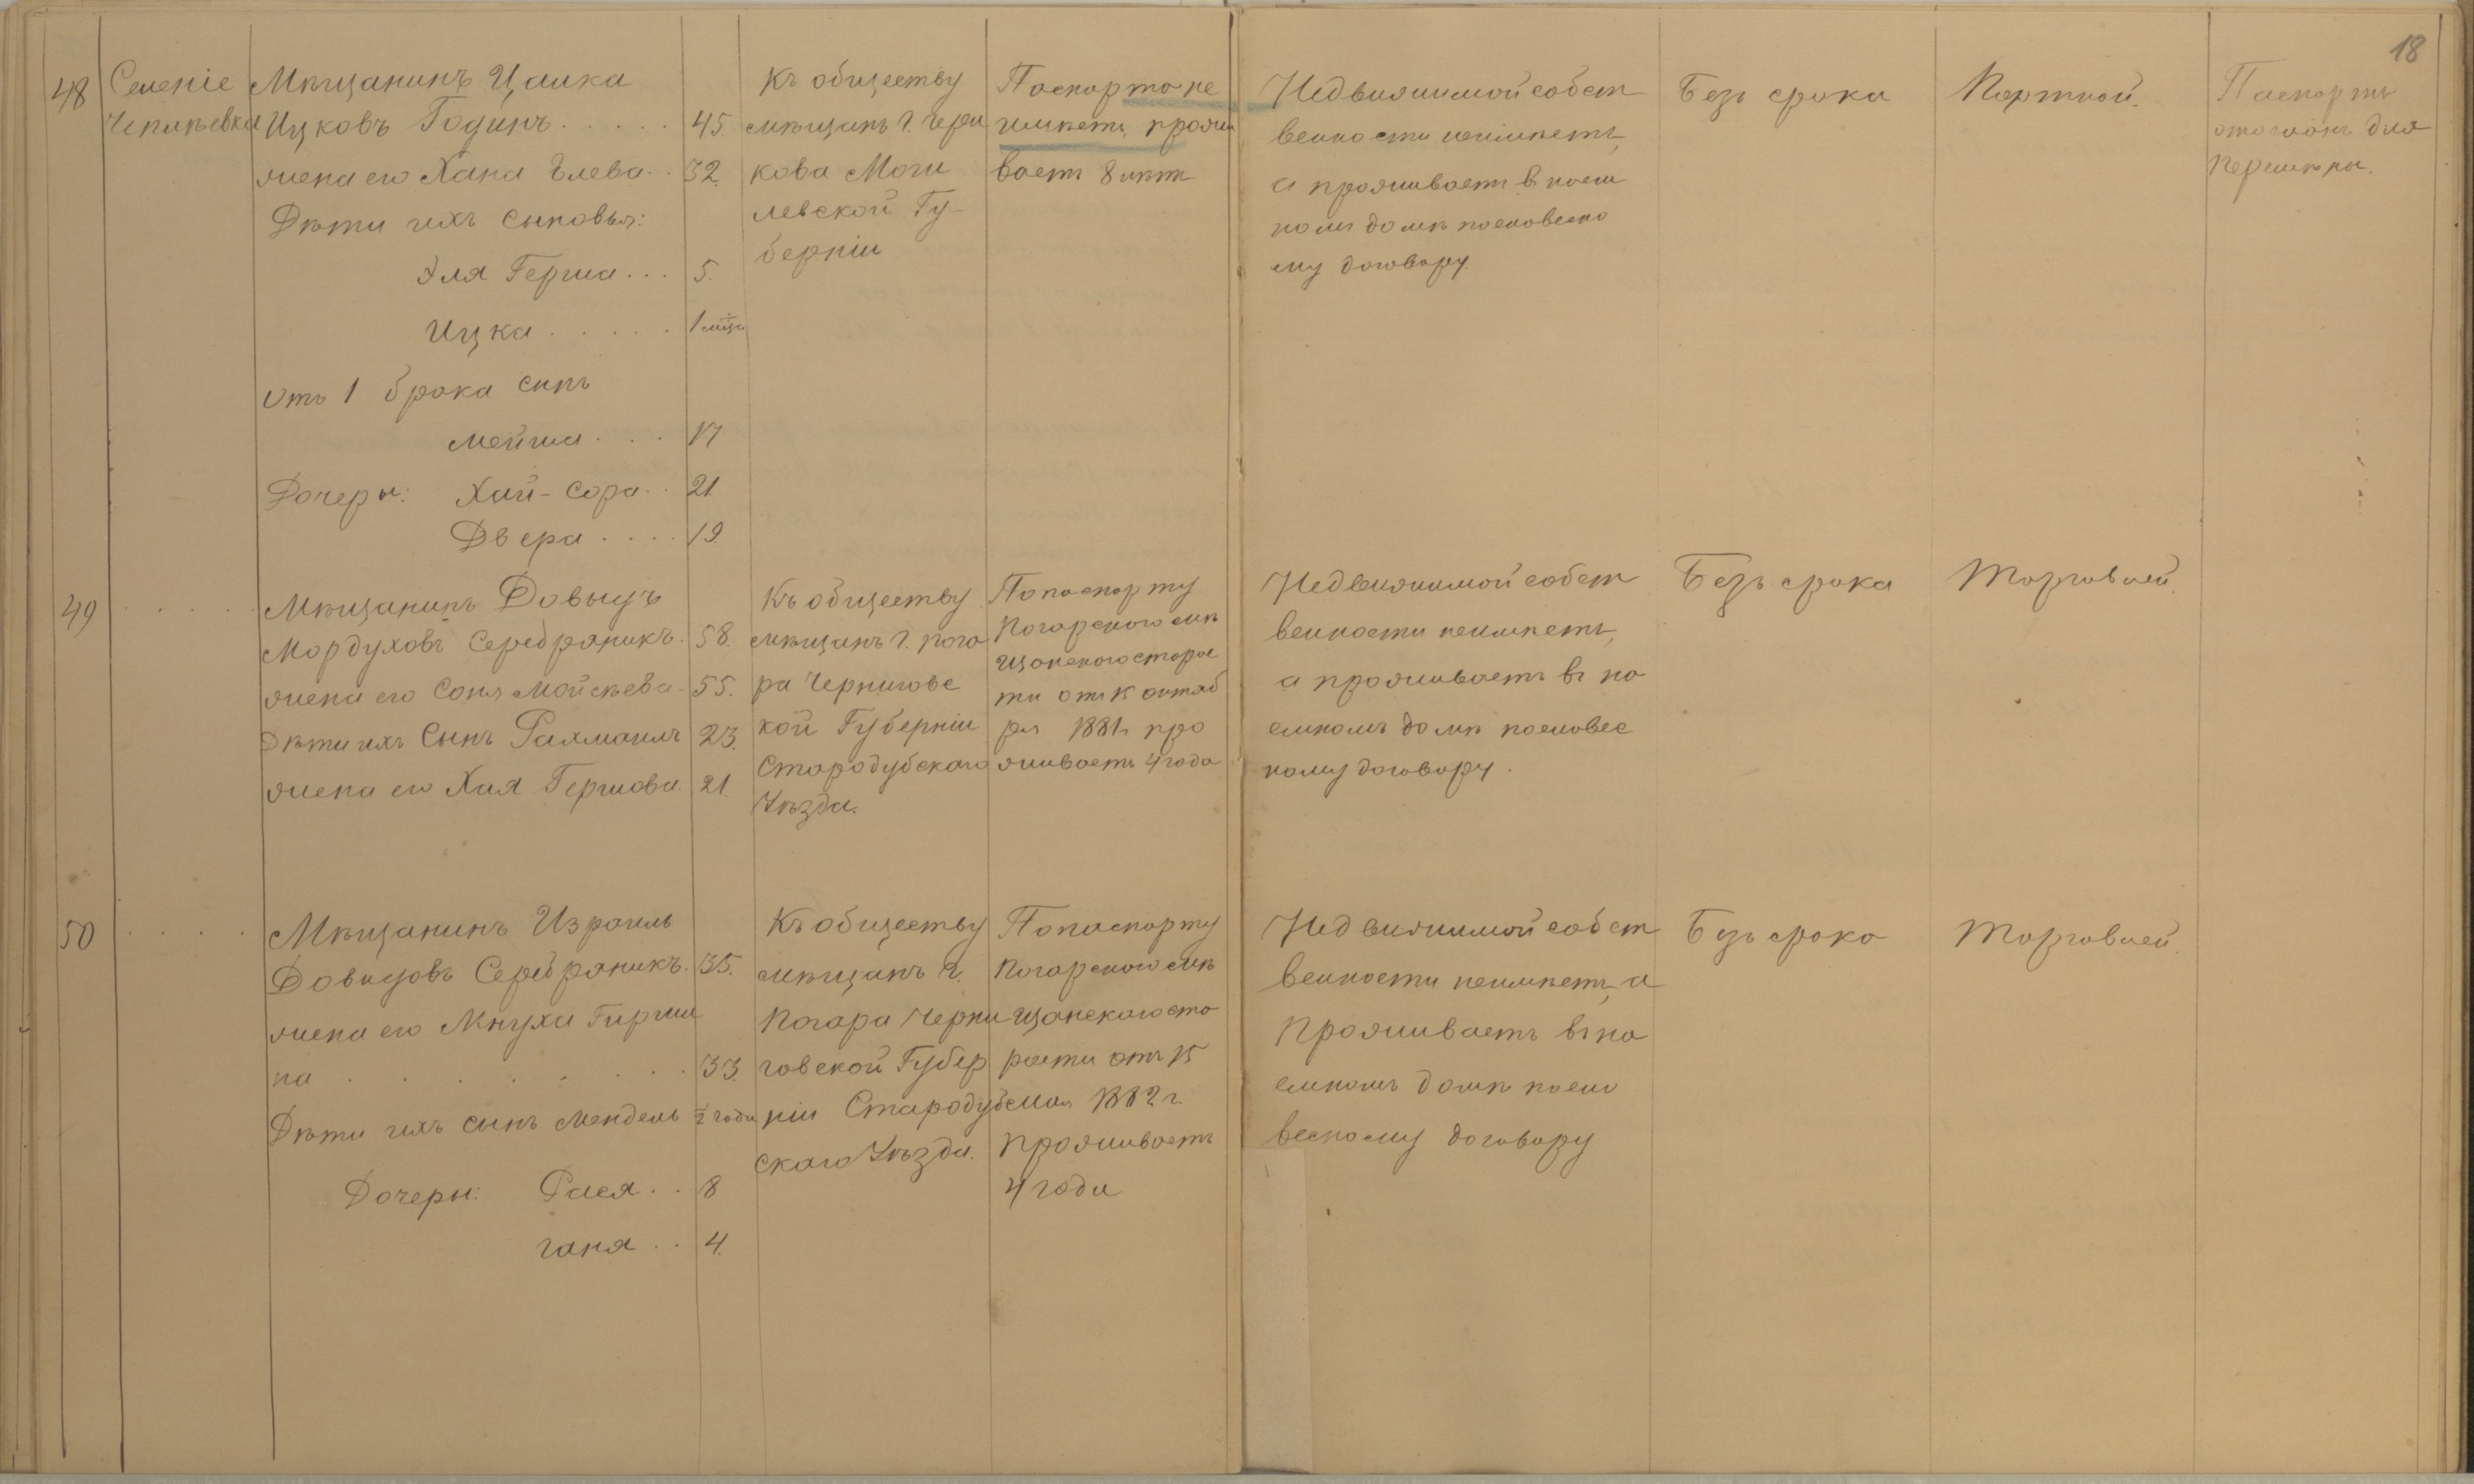 18
48
Селеніе
Чеплѣевка
Мѣщанинъ Цалка
Ицковъ Годинъ . . . . . 45.
жена его Хана Элева . . 32.
Дѣти ихъ сыновья:
Эля Герша . . . 5.
Ицка . . . . . 1 мѣся
Отъ 1 брака сынъ
Мейша . . . 17
Дочеры: Хай-Сора . . 21
Двера . . . . 19
Къ обществу
мѣщанъ г. Чери
кова Моги
левской Гу-
берніи
Паспорта не
имѣетъ, прожи
ваетъ 8 лѣтъ
Недвижимой собст
венности неимѣетъ,
а проживаетъ в наем
номъ домѣ пословесно
му договору
Безъ срока
Портной.
Паспортъ
отосланъ для
перемѣны.
49
Мѣщанинъ Довыдъ
Мордуховъ Серебряникъ . 58.
жена его Соня Мойсѣева - 55.
Дѣти ихъ Сынъ Рахмаилъ 23.
жена его Хая Гершова . 21.
Къ обществу
мѣщанъ г. Пога
ра Черниговс
кой Губерніи
Стародубскаго
Уѣзда.
По паспорту
Погарского мѣ
щанского старос
ти отъ 15 октяб
ря 1881 г. про
живаетъ 4 года
Недвижимой собст
венности неимѣетъ,
а проживаетъ въ на
емномъ домѣ пословес
ному договору.
Безъ срока
Торговлей.
50
Мѣщанинъ Израиль
Довидовъ Серебряникъ . 35.
жена его Мнуха Гирши
на . . . . . . . 33.
Дѣти ихъ сынъ Мендель ½ года
Дочеры: Рася . . 8
Ганя . . 4.
Къ обществу
мѣщанъ г.
Погара Черни
говской Губер
ніи Стародуб
скаго Уѣзда.
По паспорту
Погарского мѣ
щанского ста
росты отъ 15
мая 1882 г.
проживаетъ
4 года
Недвижимой собст
венности неимѣетъ, а
проживаетъ въ на
емномъ домѣ посло
весному договору
Безъ срока
Торговлей.